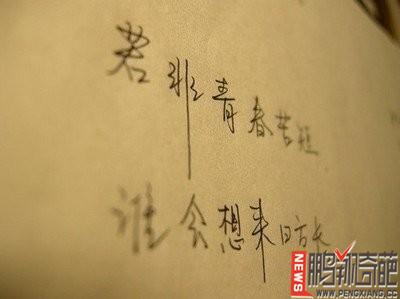 若非青春苦短
谁会想来日方长
NEWS
鹏翔奇葩
WWW.PENGXIANG.CC